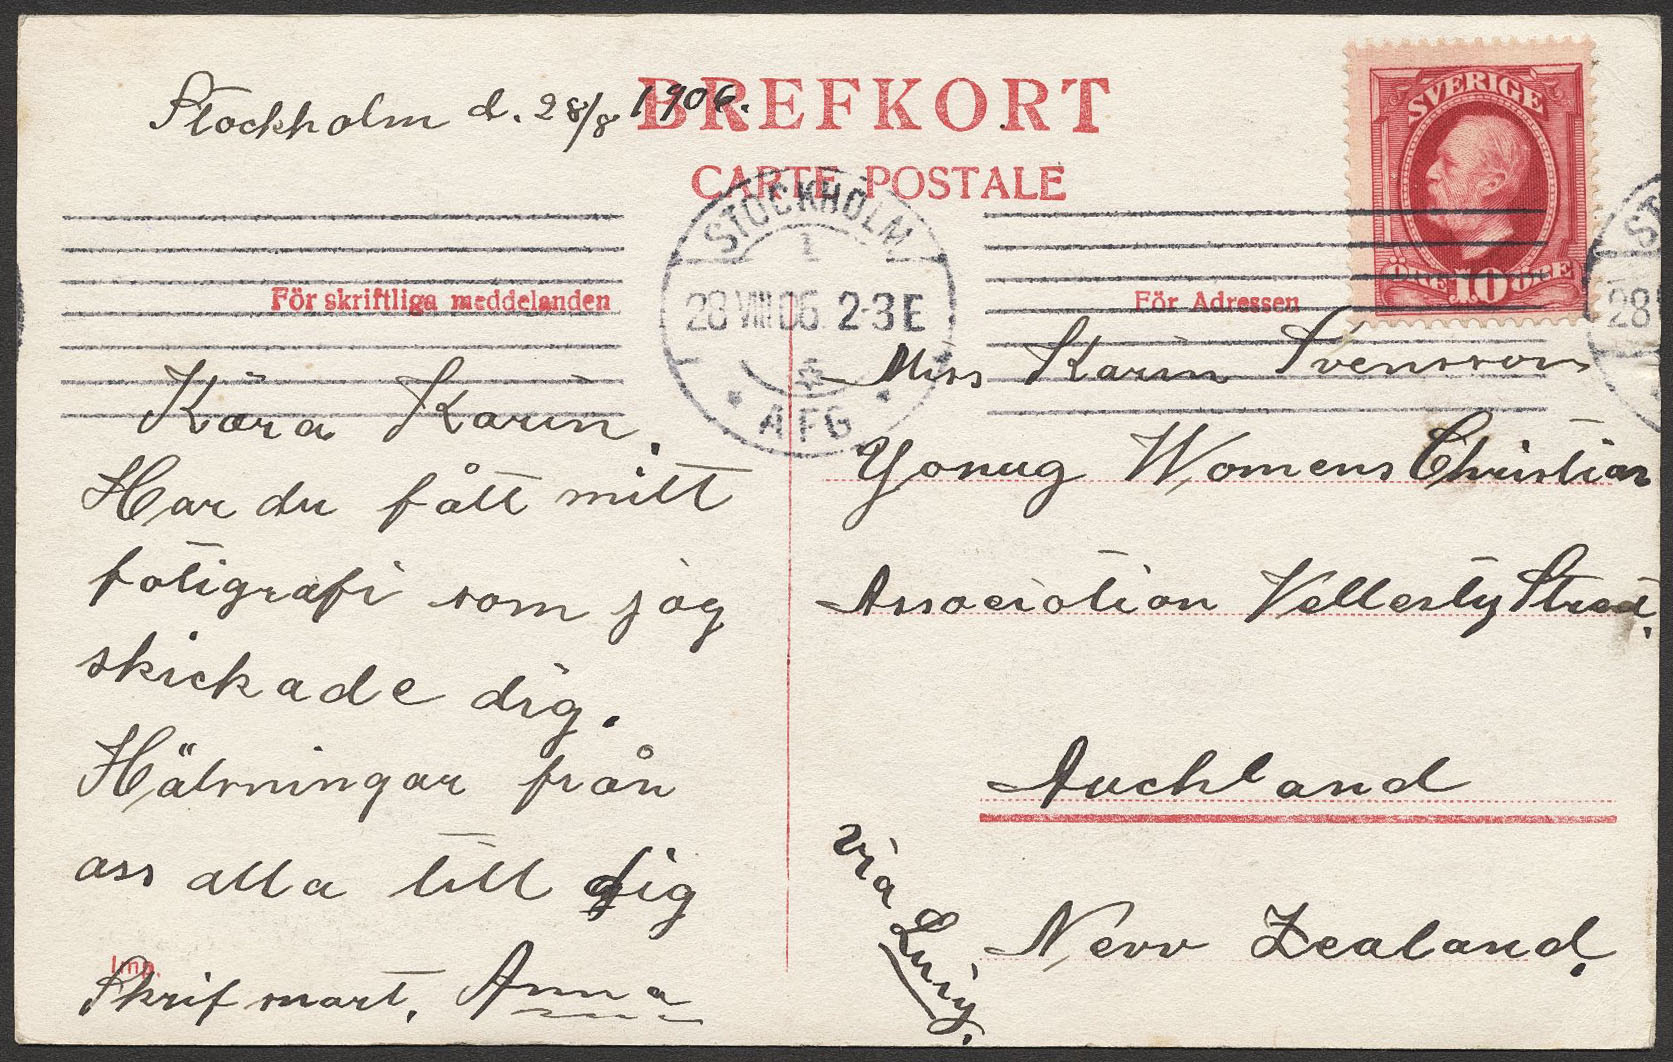 Stockholm d. 28/8 1906.
BREFKORT
CARTE POSTALE
SVERIGE
ÖRE 10 ÖRE
STOCKHOLM
1
28 VIII 06 2-3 E
AFG
ST
28
För skriftliga meddelanden
För Adressen
Kära Karin.
Har du fått mitt
fotigrafi som jag
skickade dig.
Hälsningar från
oss alla till dig
Imp.
Skrif snart. Anna
Miss Karin Svensson
Yonug Womens Christian
Association Vellesty Street.
Auchland
New Zealand.
via